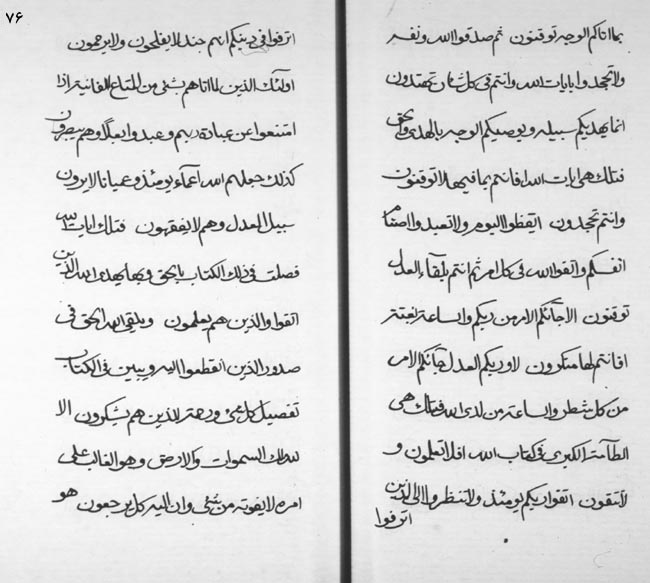 ۷۶
بما اتاكم الوجه توقنون ثم صدقوا الله ونفسه
ولا تجحدوا بايات الله وانتم في كل شان تهتدون
انما يهديكم سبيله ويوصيكم الوجه بالهدى والحق
فتلك هي ايات الله افانتم بما فيها لا توقنون
وانتم تجحدون اتيقظوا اليوم ولا تعبدوا اصنام
انفسكم واتقوا الله في كل امر ثم انتم بلقاء العدل
توقنون الا جائكم الامر من ربكم والساعة بغتة
افانتم لها منكرون لا وربكم العدل جائكم الامر
من كل شطر والساعة من لدى الله فتلك هي
الطآمة الكبرى في كتاب الله افلا تعلمون و
لا تتقون اتقوا ربكم يومئذ ولا تنظروا الى الذين
اترفوا
اترفوا في دينكم انهم جند لا يفلحون ولا يرحمون
اولئك الذين لما اتاهم بشئ من المتاع الفانية اذا
امتنعوا عن عبادة ربهم وعبدوا بعلا وهم يبصرون
كذلك جعلهم الله اعماء يومئذ وعميانا لا يرون
سبيل العدل وهم لا يفقهون فتلك ايات الله
فصلت في ذلك الكتاب بالحق وبها يهدى الله الذين
اتقوا والذين هم يعلمون ويلقي الهدا بحق في
صدور الذين انقطعوا اليه ويبين في الكتاب
تفصيل كل شئ ورحمة للذين هم يشكرون الا
لله ملك السموات والارض وهو الغالب على
امره لا يفوته من شئ وان اليه كل يرجعون هو